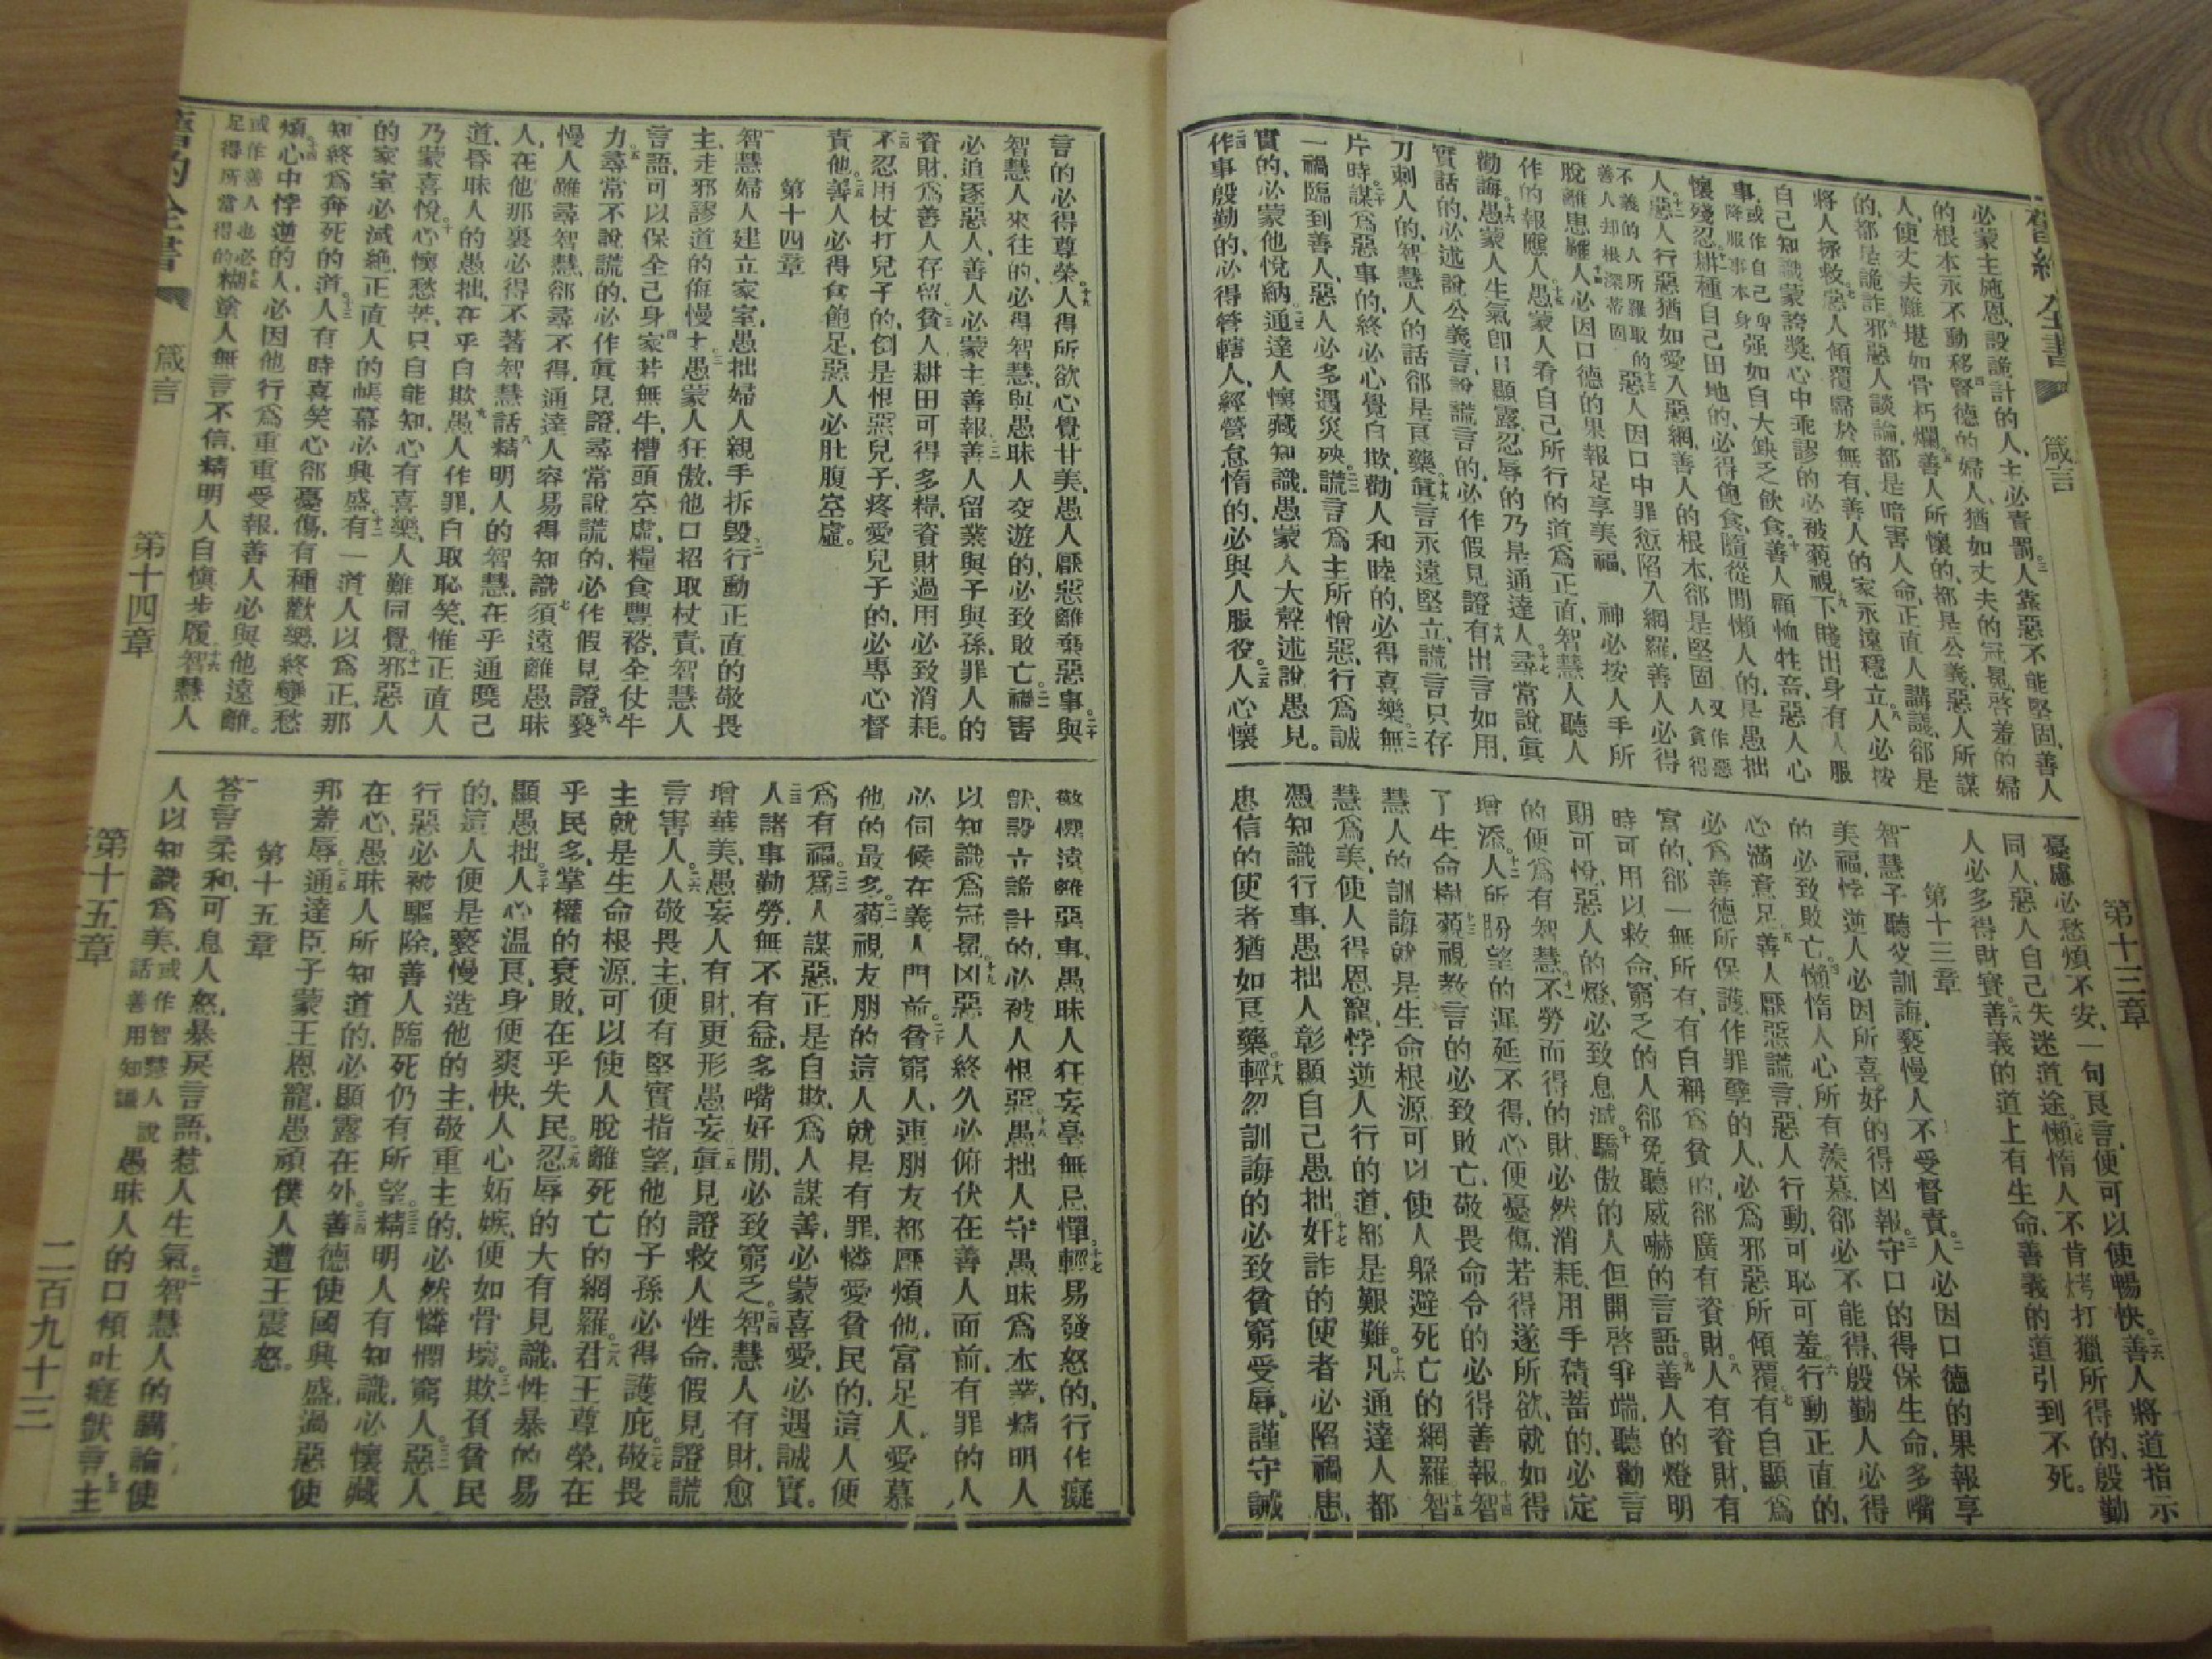 舊約全書 箴言 第十三章
必蒙主施恩、設詭計的人、主必責罰。三人靠惡不能堅固、善人
的根本永不動移。四賢德的婦人、猶如丈夫的冠冕、啓羞的婦
人、使丈夫難堪如骨朽爛。五善人所懷的、都是公義、惡人所謀
的、都是詭詐。六邪惡人談論、都是暗害人命、正直人講議、卻是
將人拯救。七惡人傾覆歸於無有、善人的家永遠穩立。八人必按
自己知識蒙誇獎、心中乖謬的必被藐視。九下賤出身有人服
事、或作自己卑降服事本身强如自大缺乏飲食。十善人顧恤牲畜、惡人心
懷殘忍。十一耕種自己田地的、必得飽食、隨從閒懶人的、是愚拙
人。十二惡人行惡猶如愛入惡網、善人的根本、卻是堅固 又作惡人貪得
不義的人所羅取的善人却根深蒂固 十三惡人因口中罪愆陷入網羅、善人必得
脫離患難。十四人必因口德的果報足享美福、 神必按人手所
作的報應人。十五愚蒙人看自己所行的道爲正直、智慧人聽人
勸誨。十六愚蒙人生氣卽日顯露、忍辱的乃是通達人。十七尋常說眞
實話的、必述說公義言、說謊言的、必作假見證。十八有出言如用
刀刺人的、智慧人的話卻是良藥。十九眞言永遠堅立、謊言只存
片時。二十謀爲惡事的、終必心覺自欺、勸人和睦的、必得喜樂。二一無
一禍臨到善人、惡人必多遇災殃。二二謊言爲主所憎惡、行爲誠
實的、必蒙他悅納。二三通達人懷藏知識、愚蒙人大聲述說愚見。
二四作事殷勤的、必得管轄人、經營怠惰的、必與人服役。二五人心懷
憂慮必愁煩不安、一句良言、便可以使暢快。二六善人將道指示
同人、惡人自己失迷道途。二七懶惰人不肯烤打獵所得的、殷勤
人必多得財寶。二八善義的道上有生命、善義的道引到不死。
第十三章
一智慧子聽從訓誨、褻慢人不受督責。二人必因口德的果報享
美福、悖逆人必因所喜好的得凶報。三守口的得保生命、多嘴
的必致敗亡。四懶惰人心所有羨慕、卻必不能得、殷勤人必得
心滿意足。五善人厭惡謊言、惡人行動、可恥可羞。六行動正直的、
必爲善德所保護、作罪孽的人、必爲邪惡所傾覆。七有自顯爲
富的、卻一無所有、有自稱爲貧的、卻廣有資財。八人有資財、有
時可用以救命、窮乏的人卻免聽威嚇的言語。九善人的燈明
朗可悅、惡人的燈、必致息滅。十驕傲的人但開啓爭端、聽勸言
的便爲有智慧。十一不勞而得的財、必然消耗、用手積蓄的、必定
增添。十二人所盼望的遲延不得、心便憂傷、若得遂所欲、就如得
了生命樹。十三藐視教言的必致敗亡、敬畏命令的必得善報。十四智
慧人的訓誨就是生命根源可以使人躲避死亡的網羅。十五智
慧爲美、使人得恩寵、悖逆人行的道、都是艱難。十六凡通達人都
憑知識行事、愚拙人彰顯自己愚拙。十七奸詐的使者必陷禍患、
忠信的使者猶如良藥。十八輕忽訓誨的必致貧窮受辱、謹守誡
言的必得尊榮。十九人得所欲心覺甘美、愚人厭惡離棄惡事。二十與
智慧人來往的、必得智慧、與愚昧人交遊的、必致敗亡。二一禍害
必追逐惡人、善人必蒙主善報。二二善人留業與子與孫、罪人的
資財、爲善人存留。二三貧人耕田可得多糧、資財過用必致消耗。
二四不忍用杖打兒子的、倒是恨惡兒子、疼愛兒子的、必專心督
責他。二五善人必得食飽足、惡人必肚腹空虛。
第十四章
一智慧婦人建立家室、愚拙婦人親手拆毀。二行動正直的敬畏
主、走邪謬道的侮慢主。三愚蒙人狂傲、他口招取杖責、智慧人
言語、可以保全己身。四家若無牛、槽頭空虛、糧食豐裕、全仗牛
力。五尋常不說謊的、必作眞見證、尋常說謊的、必作假見證。六褻
慢人雖尋智慧、卻尋不得、通達人容易得知識。七須遠離愚昧
人、在他那裏必得不著智慧話。八精明人的智慧、在乎通曉己
道、愚昧人的愚拙、在乎自欺。九愚人作罪、自取恥笑、惟正直人
乃蒙喜悅。十心懷愁苦、只自能知、心有喜樂、人難同覺。十一邪惡人
的家室必滅絶、正直人的帳幕必興盛。十二有一道人以爲正、那
知終爲奔死的道。十三人有時喜笑心卻憂傷、有種歡樂、終變愁
煩。十四心中悖逆的人、必因他行爲重重受報、善人必與他遠離。
或作善人也必足得所當得的 十五糊塗人無言不信、精明人自愼步履。十六智慧人
敬懼遠離惡事、愚昧人狂妄毫無忌憚。十七輕易發怒的、行作癡
獃、設立詭計的、必被人恨惡。十八愚拙人守愚昧爲本業、精明人
以知識爲冠冕。十九凶惡人終久必俯伏在善人面前、有罪的人
必伺候在義人門前。二十貧窮人、連朋友都厭煩他、富足人、愛慕
他的最多。二一藐視友朋的這人就是有罪、憐愛貧民的、這人便
爲有福。二二爲人謀惡、正是自欺、爲人謀善、必蒙喜愛、必遇誠實。
二三人諸事勤勞、無不有益、多嘴好閒、必致窮乏。二四智慧人有財、愈
增華美、愚妄人有財、更形愚妄。二五眞見證救人性命、假見證謊
言害人。二六人敬畏主、便有堅實指望、他的子孫必得護庇。二七敬畏
主就是生命根源、可以使人脫離死亡的網羅。二八君王尊榮、在
乎民多、掌權的衰敗、在乎失民。二九忍辱的大有見識、性暴的易
顯愚拙。三十人心溫良、身便爽快、人心妬嫉、便如骨壞。三一欺負貧民
的、這人便是褻慢造他的主、敬重主的、必然憐憫窮人。三二惡人
行惡必被驅除、善人臨死仍有所望。三三精明人有知識、必懷藏
在心、愚昧人所知道的、必顯露在外。三四善德使國興盛、過惡使
邦羞辱。三五通達臣子蒙王恩寵、愚頑僕人遭王震怒。
第十五章
一答言柔和、可息人怒、暴戾言語、惹人生氣。二智慧人的講論使
人以知識爲美、或作智慧人說話善用知識 愚昧人的口傾吐癡獃言。三主
舊約全書 箴言 第十四章 第十五章 二百九十三